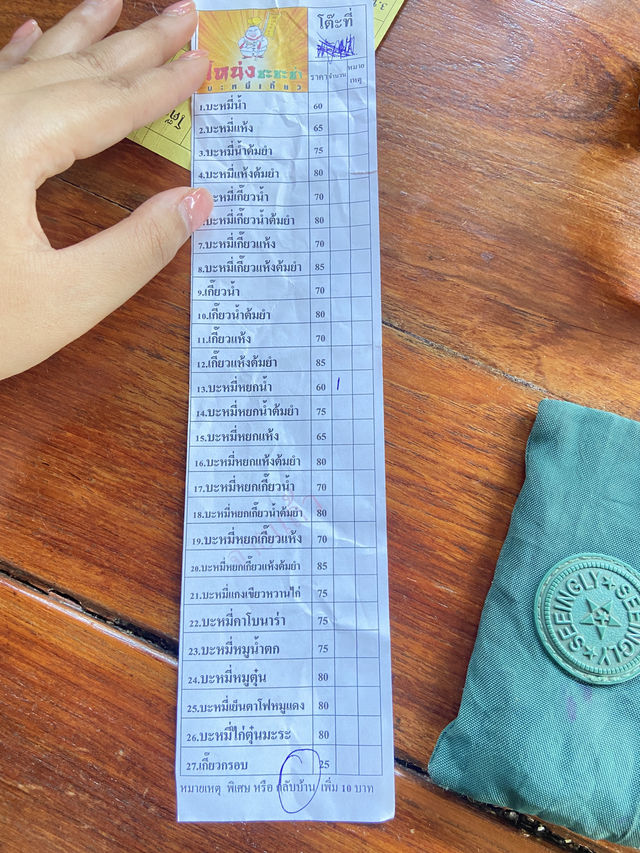 โต๊ะที่
หนึ่งชะชะช่า
บะหมี่เกี๊ยว
ราคา จำนวน หมายเหตุ
1.บะหมี่น้ำ 60
2.บะหมี่แห้ง 65
3.บะหมี่น้ำต้มยำ 75
4.บะหมี่แห้งต้มยำ 80
บะหมี่เกี๊ยวน้ำ 70
บะหมี่เกี๊ยวน้ำต้มยำ 80
7.บะหมี่เกี๊ยวแห้ง 70
8.บะหมี่เกี๊ยวแห้งต้มยำ 85
9.เกี๊ยวน้ำ 70
10.เกี๊ยวน้ำต้มยำ 80
11.เกี๊ยวแห้ง 70
12.เกี๊ยวแห้งต้มยำ 85
13.บะหมี่หยกน้ำ 60 1
14.บะหมี่หยกน้ำต้มยำ 75
15.บะหมี่หยกแห้ง 65
16.บะหมี่หยกแห้งต้มยำ 80
17.บะหมี่หยกเกี๊ยวน้ำ 70
18.บะหมี่หยกเกี๊ยวน้ำต้มยำ 80
19.บะหมี่หยกเกี๊ยวแห้ง 70
20.บะหมี่หยกเกี๊ยวแห้งต้มยำ 85
21.บะหมี่แกงเขียวหวานไก่ 75
22.บะหมี่คาโบนาร่า 75
23.บะหมี่หมูน้ำตก 75
24.บะหมี่หมูตุ๋น 80
25.บะหมี่เย็นตาโฟหมูแดง 80
26.บะหมี่ไก่ตุ๋นมะระ 80
27.เกี๊ยวกรอบ 25
หมายเหตุ พิเศษ หรือ กลับบ้าน เพิ่ม 10 บาท
SEEINGLY SEEINGLY